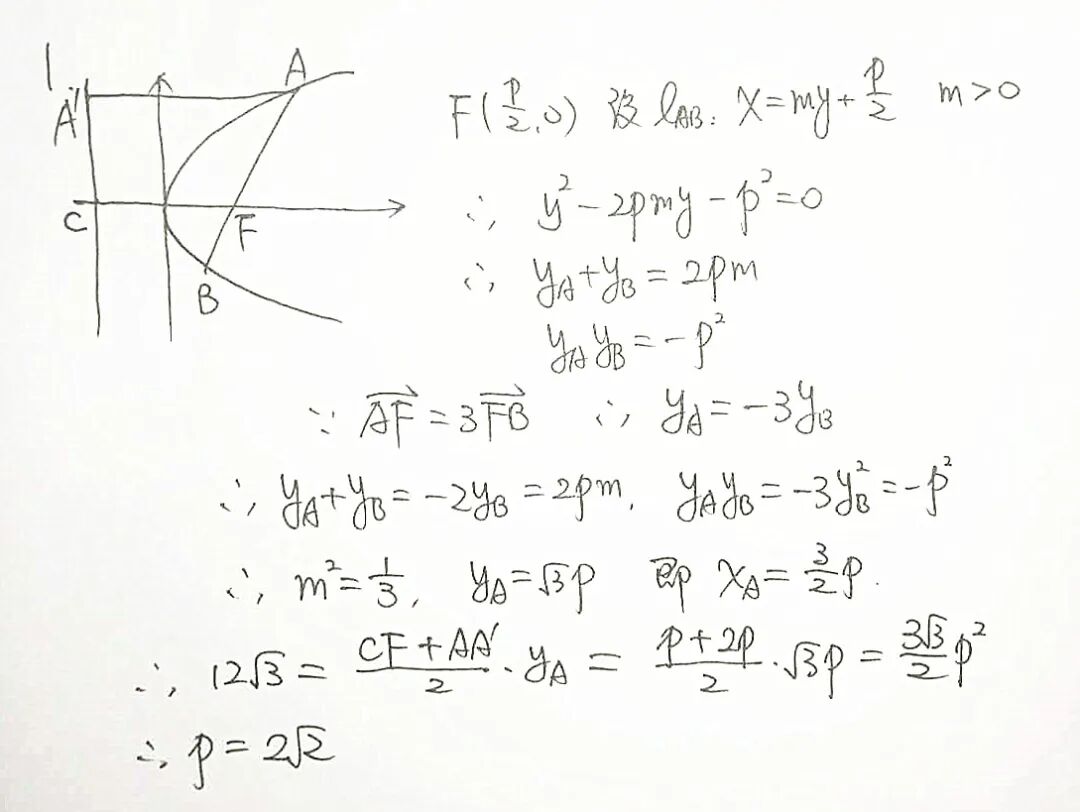 l
A
A'
C
F
B
F(p/2,0) 设 l_AB: x=my+p/2 m>0
∴ y²-2pmy-p²=0
∴ y_A+y_B=2pm
y_A y_B=-p²
∵ \overrightarrow{AF}=3\overrightarrow{FB} ∴ y_A=-3y_B
∴ y_A+y_B=-2y_B=2pm, y_A y_B=-3y_B²=-p²
∴ m²=1/3, y_A=√3p 即 x_A=3/2p.
∴ 12√3=(CF+AA')/2·y_A=(p+2p)/2·√3p=3√3/2p²
∴ p=2√2